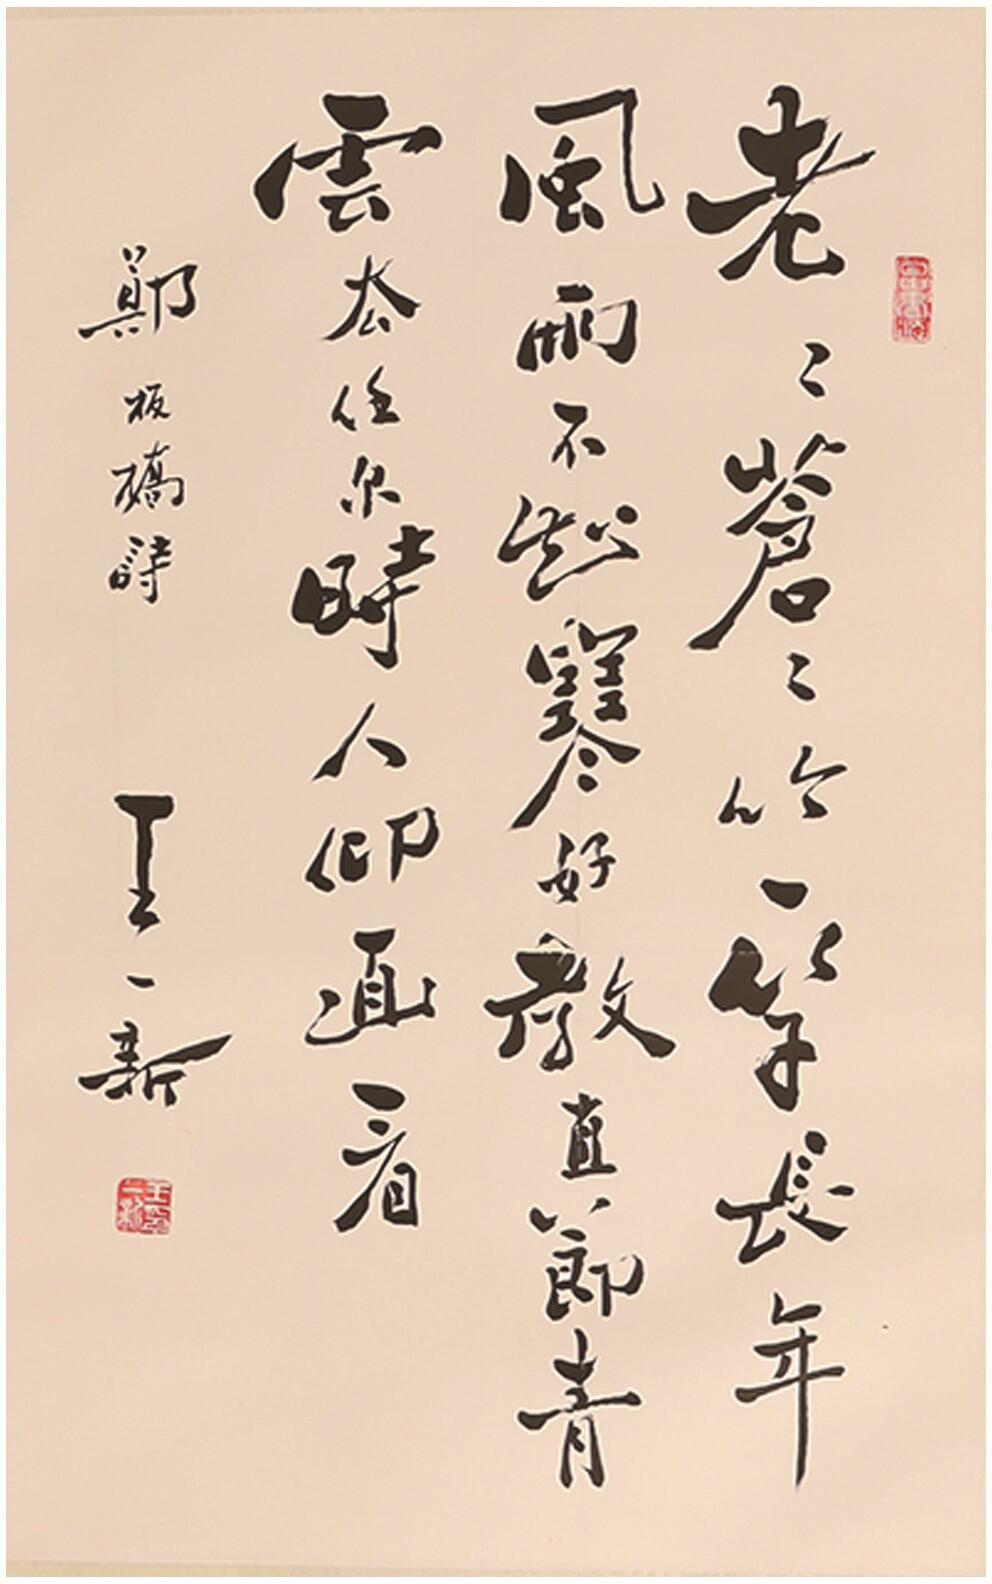 老〻蒼〻竹一竿長年
風雨不知寒好教直節青
雲去任尔時人仰面看
鄭板橋詩 王一新